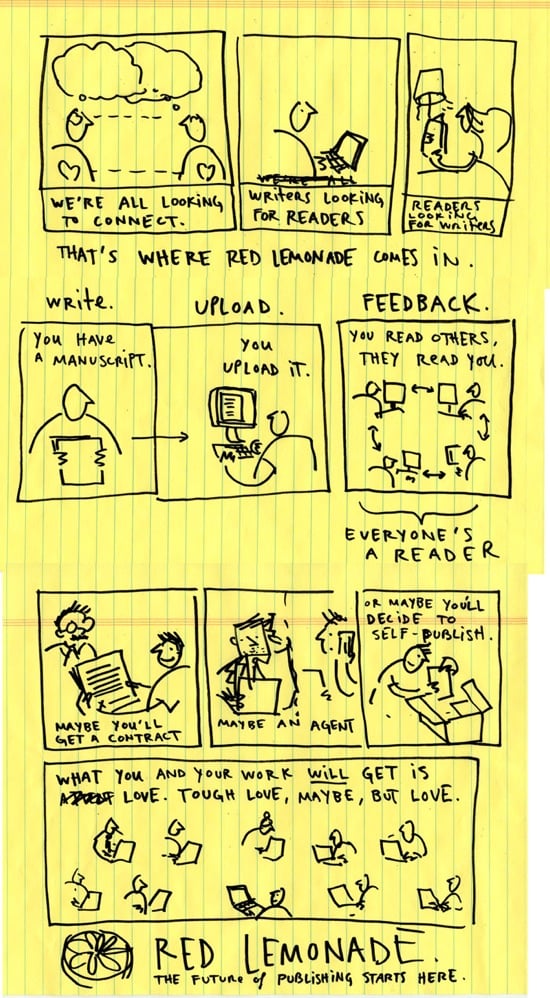 WE'RE ALL LOOKING
TO CONNECT.
WRITERS LOOKING
FOR READERS
READERS
LOOKING
FOR WRITERS
THAT'S WHERE RED LEMONADE COMES IN.
WRITE.
UPLOAD.
FEEDBACK.
YOU HAVE
A MANUSCRIPT.
YOU
UPLOAD IT.
YOU READ OTHERS,
THEY READ YOU.
EVERYONE'S
A READER
MAYBE YOU'LL
GET A CONTRACT
MAYBE AN AGENT
OR MAYBE YOU'LL
DECIDE TO
SELF-PUBLISH.
WHAT YOU AND YOUR WORK WILL GET IS
LOVE. TOUGH LOVE, MAYBE, BUT LOVE.
RED LEMONADE.
THE FUTURE of PUBLISHING STARTS HERE.